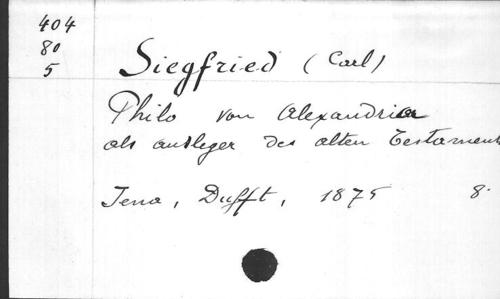 404
80
5
Siegfried (Carl)
Philo von Alexandria
als ausleger des alten Testament
Jena, Dufft, 1875 8°